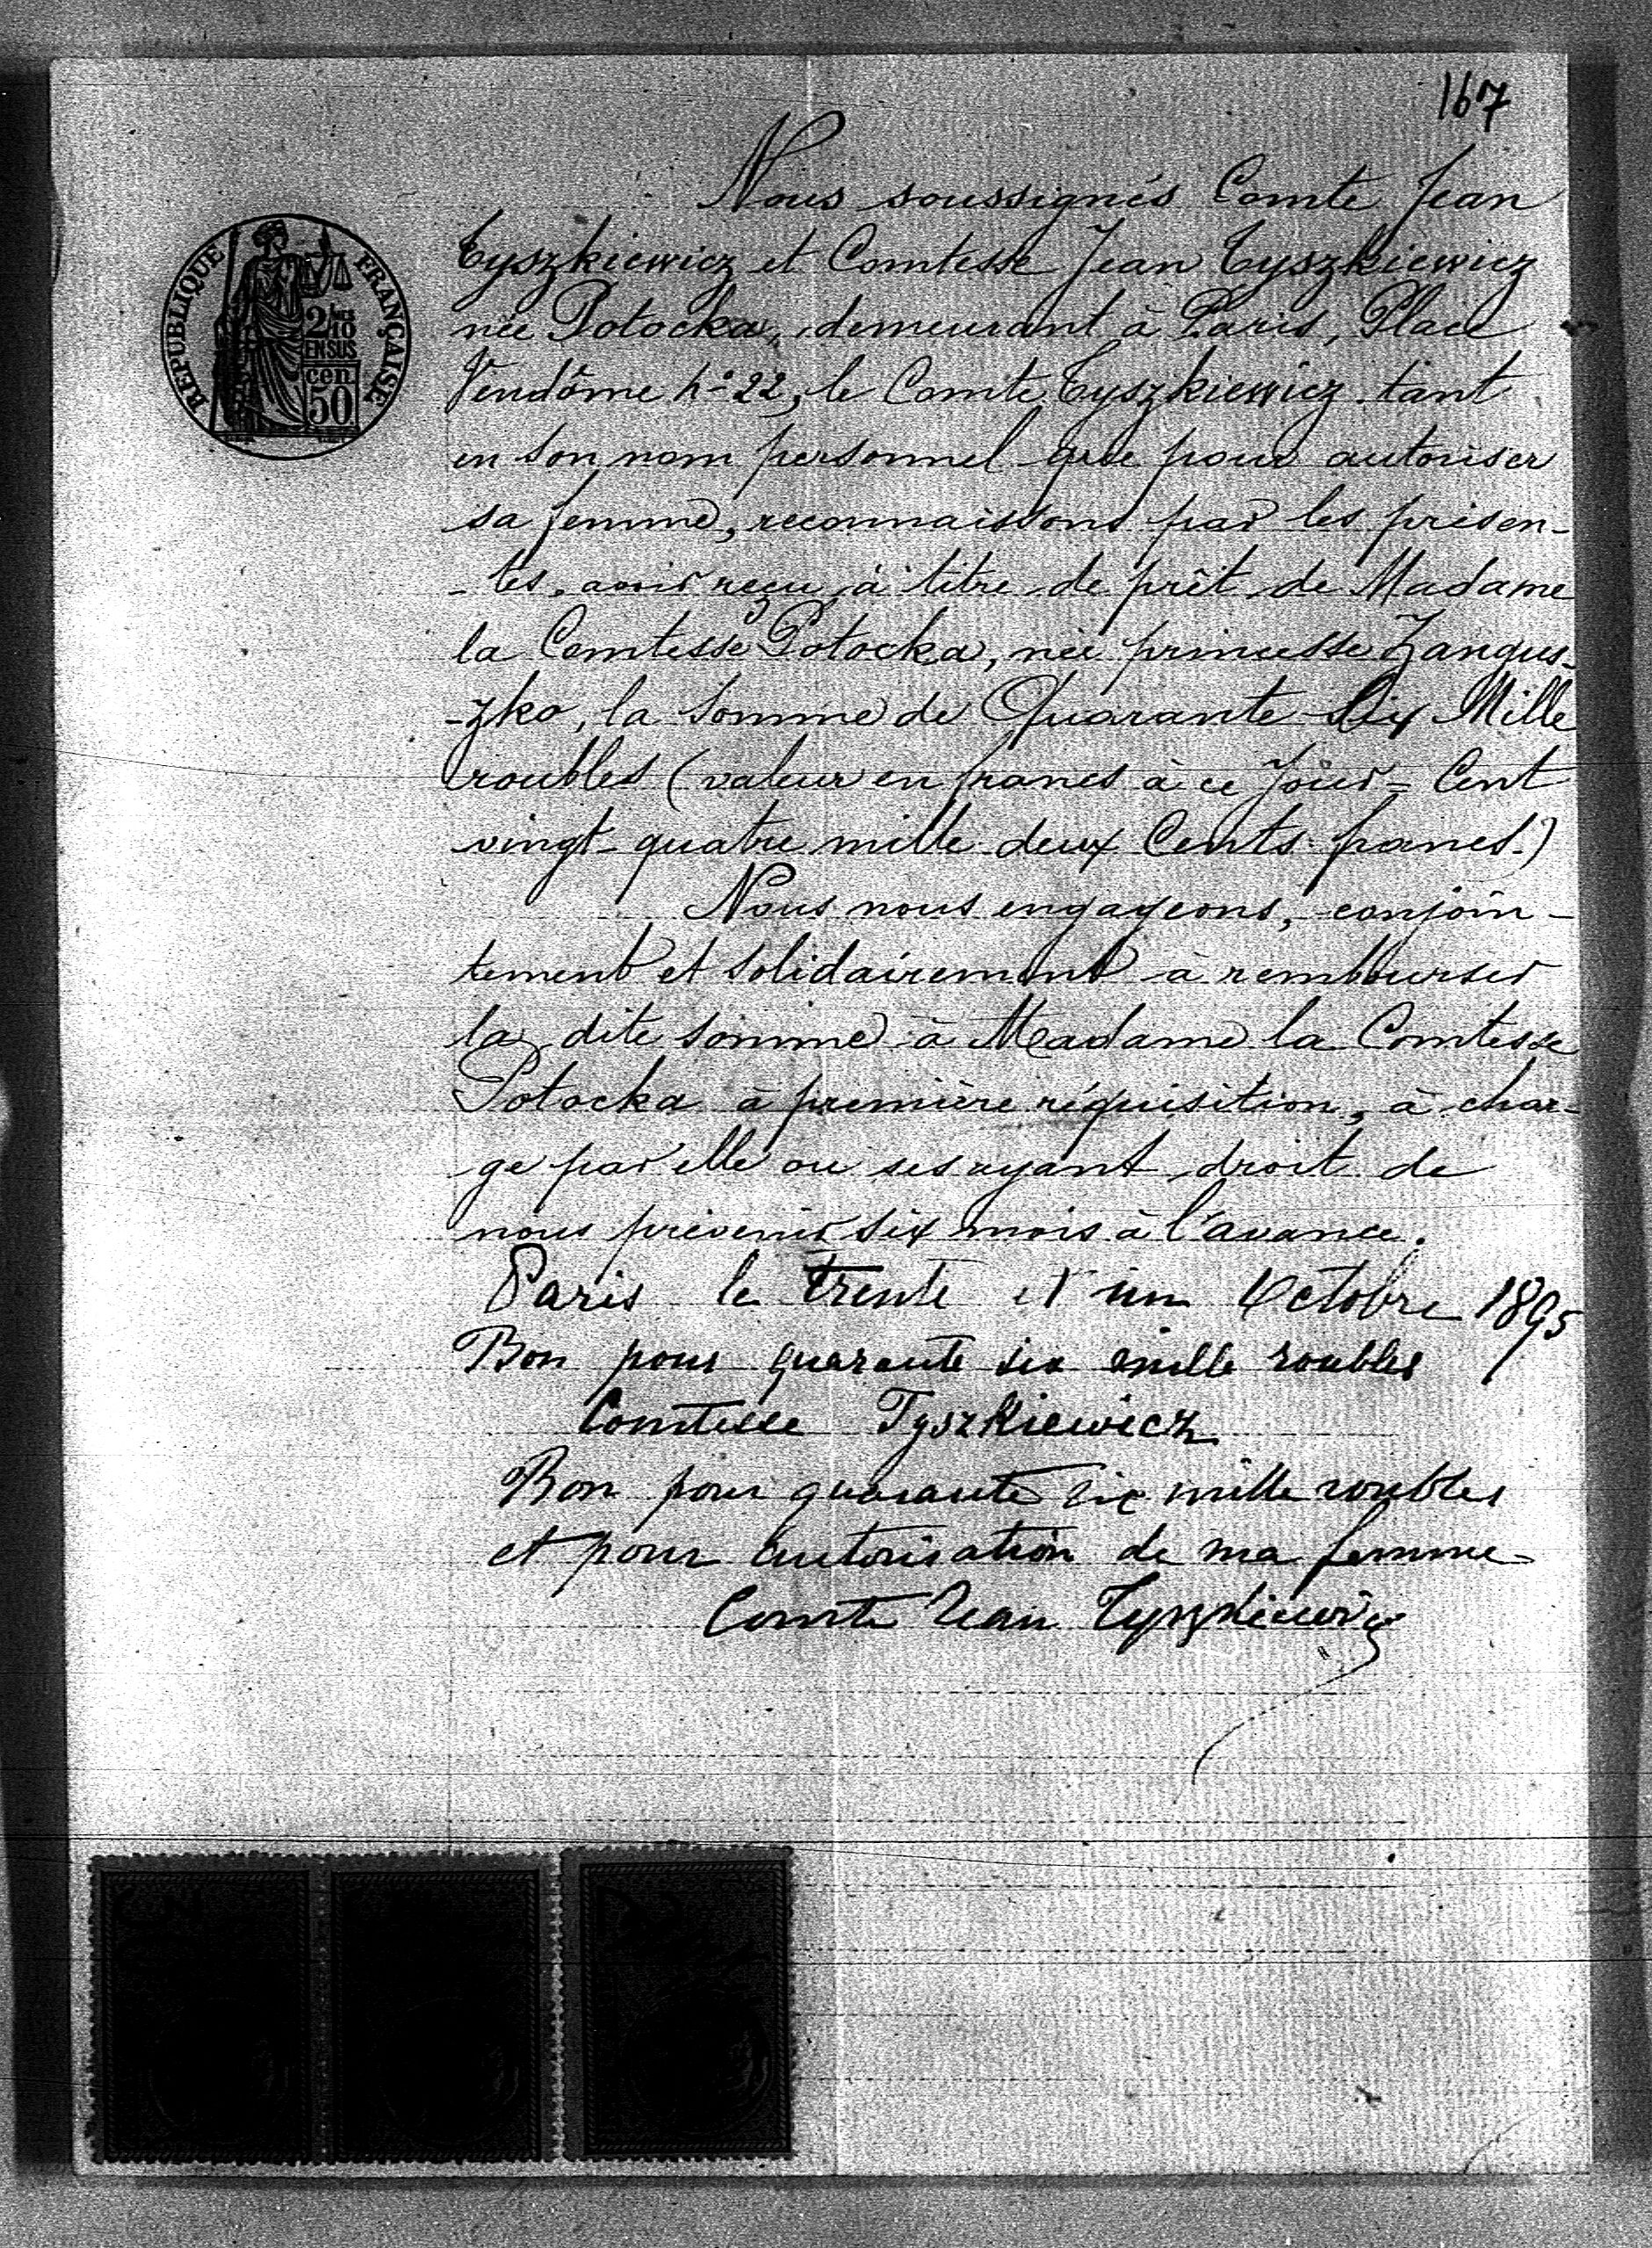 167
Nous soussignés Comte Jean
Tyszkiewicz et Comtesse Jean Tyszkiewicz
née Potocka, demeurant à Paris, Place
Vendôme No 22, le Comte Tyszkiewicz tant
en son nom personnel que pour autoriser
sa femme, reconnaissons par les présen-
-tes avoir reçu à titre de prêt de Madame
la Comtesse Potocka, née princesse Zangus-
-zko, la somme de Quarante Six Mille
roubles (valeur en francs à ce jour = Cent
vingt-quatre mille deux Cents francs.)
Nous nous engageons, conjoin-
tement et solidairement à rembourser
la dite somme à Madame la Comtesse
Potocka à première réquisition, à char-
ge par elle ou ses ayant droit de
nous prévenir six mois à l'avance.
Paris le trente et un Octobre 1895
Bon pour quarante six mille roubles
Comtesse Tyszkiewicz
Bon pour quarante six mille roubles
et pour autorisation de ma femme
Comte Jean Tyszkiewicz
REPUBLIQUE FRANÇAISE
2/10
EN SUS
cen.
50